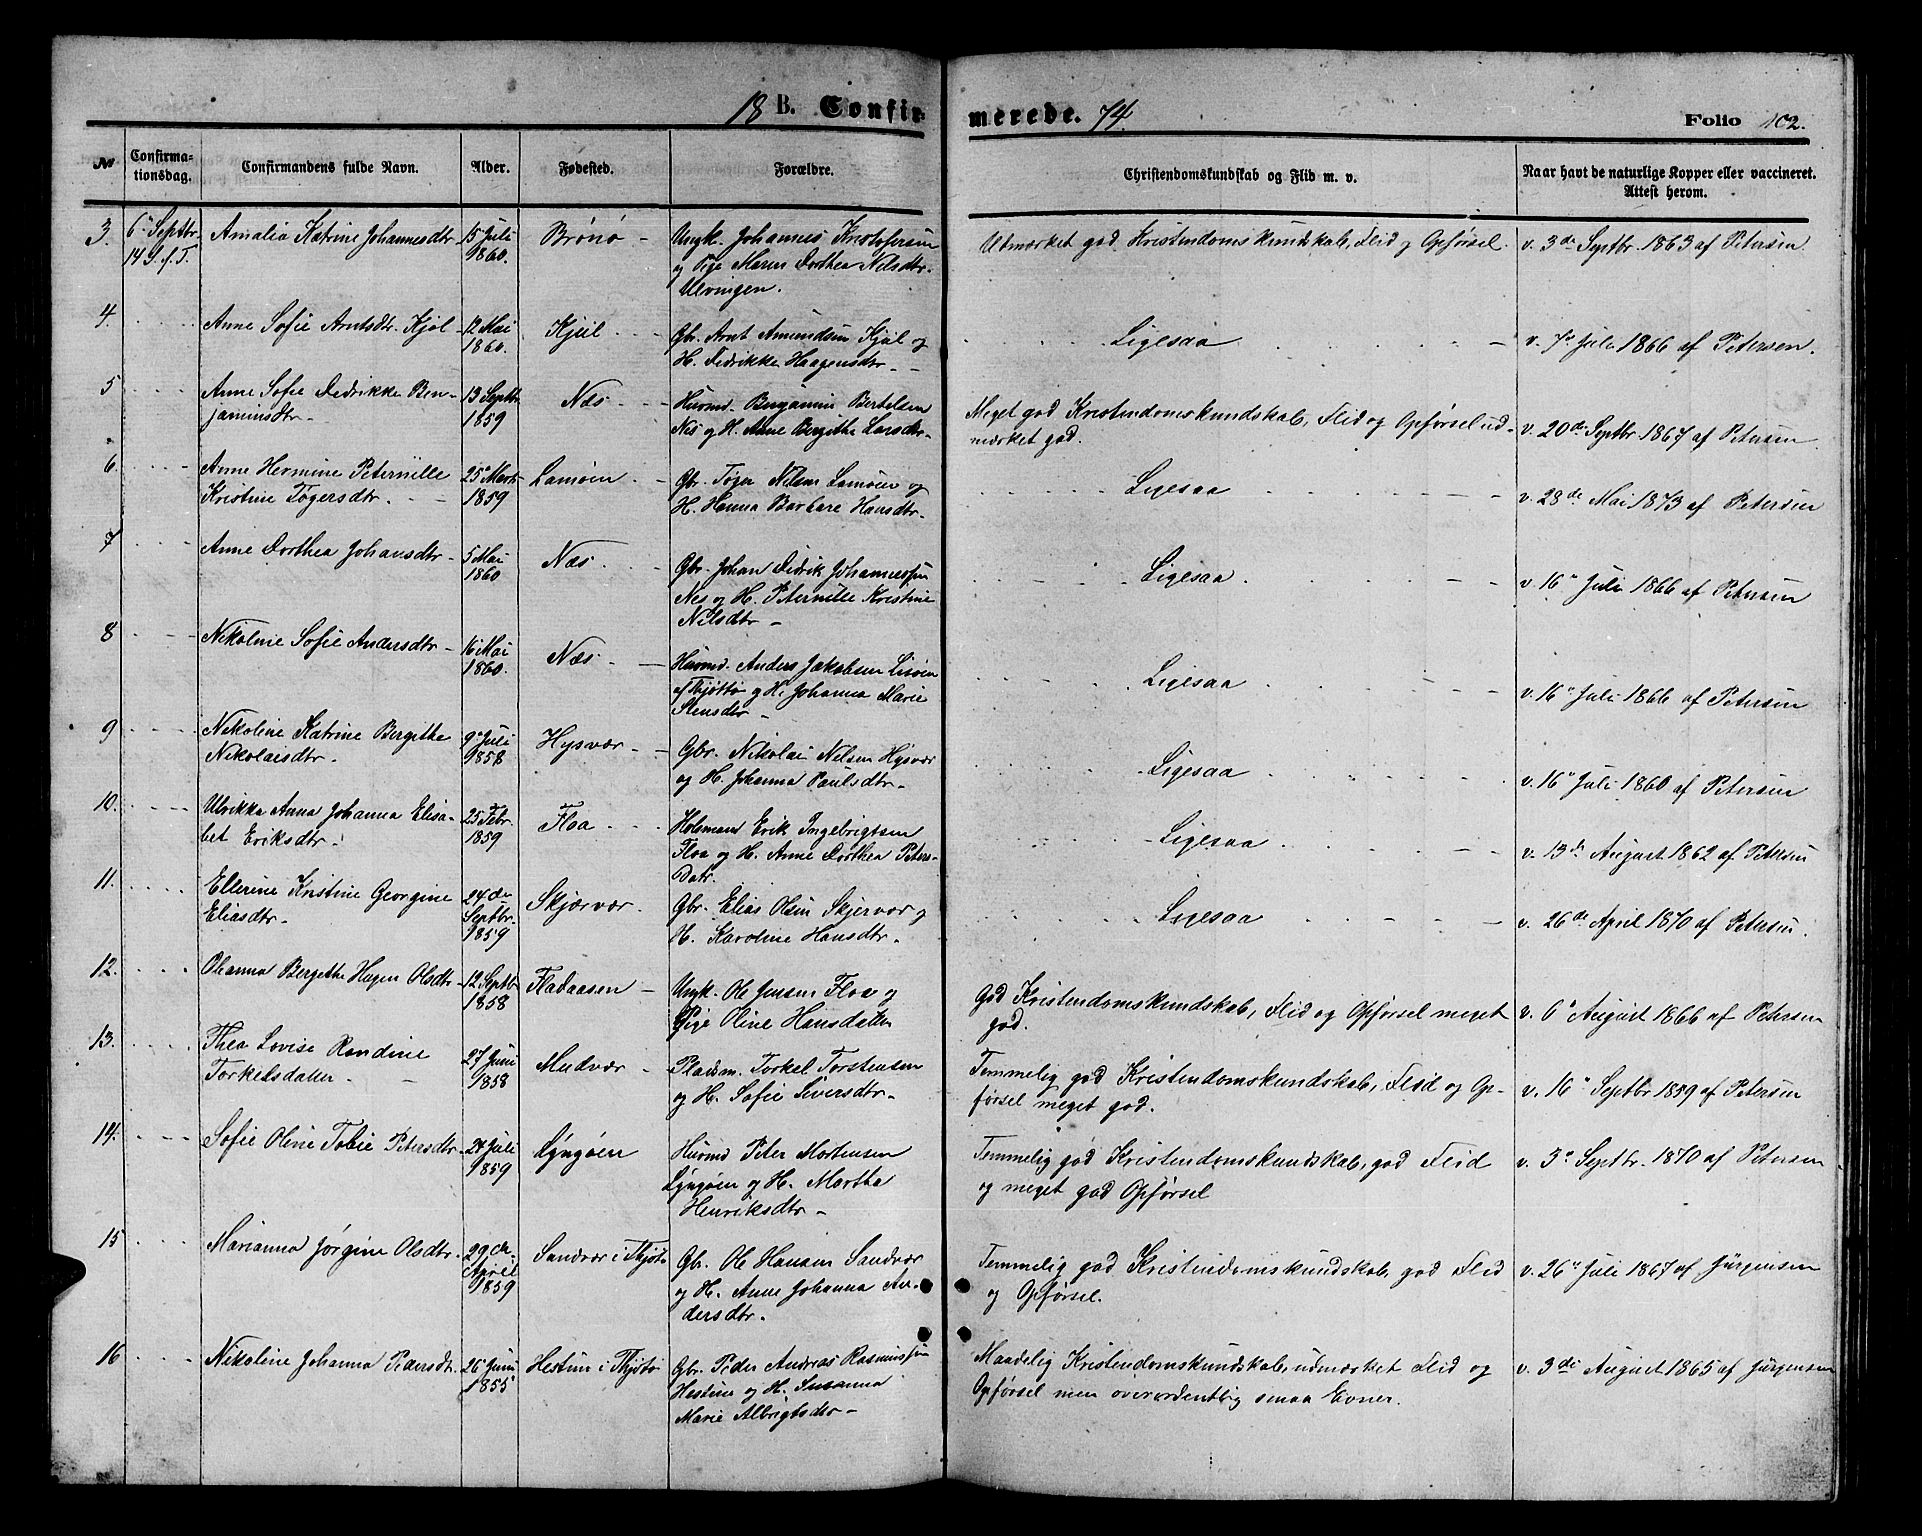 18 B. Confirmerede. 74.
Folio 102.
№ Confirmationsdag. Confirmandens fulde Navn. Alder. Fødested. Forældre. Christendomskundskab og Flid m. v. Naar havt de naturlige Kopper eller vaccineret. Attest herom.
3. 6te Septbr. 14 S. f. T. Amalia Katrine Johannesdtr 15 Juli 1860. Brønø - Ungk. Johannes Kristofersen
og Pige Maren Dorthea Nilsdtr.
Ulvingen.
Udmærket god Kristendomskundskab, Flid og Opførsel. v. 3de Septbr. 1863 af Petersen.
4. Anne Sofie Arntsdtr. Kjøl 12 Mai 1860. Kjøl Gbr. Arnt Amundsen Kjøl og
H. Didrikke Haagensdtr
Ligesaa v. 7de Juli 1866 af Petersen.
5 Anne Sofie Didrikke Ben-
jaminsdtr. 13 Septbr 1859 Næs Huusmd. Benjamin Bertelsen
Nes og H. Anne Bergithe Larsdtr.
Meget god Kristendomskundskab, Flid og Opførsel ud-
mærket god. v. 20de Septbr 1867 af Petersen
6. Anne Hermine Peternille
Kristine Tøgersdtr. 25de Marts 1859 Lamøen Gbr. Tøger Nilsen Lamøen og
H. Hanna Barbare Hansdtr.
Ligesaa v. 28de Mai 1873 af Petersen
7 Anne Dorthea Johansdtr 5 Mai 1860 Næs Gbr. Johan Didrik Johannessen
Nes og H. Peternille Kristine
Nilsdtr
Ligesaa v. 16de Juli 1866 af Petersen
8 Nikoline Sofie Andersdtr 16 Mai 1860. Næs Huusmd. Anders Jakobsen
af Thjøttø og H. Johanna Marie
Stensdtr
Ligesaa v. 16de Juli 1866 af Petersen
9 Nikoline Katrine Bergithe
Nikolaisdtr. 9de Juli 1858 Hysvær Gbr. Nikolai Nilsen Hysvær
og H. Johanna Paulsdtr.
Ligesaa v. 16de Juli 1860 af Petersen
10. Ulrikka Anna Johanna Elisa-
bet Eriksdtr. 25 Febr. 1859 Floa Erik Ingebrigtsen
Floa og H. Anne Dorthea Peters-
Datr.
Ligesaa v. 13de August 1862 af Petersen
11. Ellerine Kristine Georgine
Eliasdtr. 24de Septbr. 1859 Skjærvær. Gbr. Elias Olsen Skjervær og
H. Karoline Hansdtr.
Ligesaa v. 26de April 1870 af Petersen.
12. Olianna Bergithe Hagen Olsdtr 12 Septbr 1858 Fladaasen Ungk. Ole Jensen Floa og
Pige Oline Hansdatter
God Kristendomskundskab, Flid og Opførsel meget
god. v. 6te August 1866 af Petersen
13. Thea Lovise Randine
Torkelsdatter. 27 Juni 1858 Mudvær Pladsm. Torkel Torstensen
og H. Sofie Siversdtr.
Temmelig god Kristendomskundskab, Flid og Op-
førsel meget god. v. 16de Septbr 1859 af Petersen
14. Sofie Oline Tobie Petersdtr. 24 Juli 1859 Lyngøen Huusmd Peter Mortensen
Lyngøen og H. Martha
Henriksdtr.
Temmelig god Kristendomskundskab, god Flid
og meget god Opførsel v. 3de Septbr. 1870 af Petersen
15 Marianna Jørgine Olsdtr. 29de April 1859 Sandvær i Thjøtø Gbr. Ole Hansen Sandvær
og H. Anne Johanna An-
dersdtr.
Temmelig god Kristendomskundskab, god Flid
og Opførsel. v. 26de Juli 1867 af Jürgensen
16 Nikoline Johanna Pedersdtr. 26 Juni 1855 Hestun i Thjøtø Gbr. Peder Andreas Rasmussen
Hestun og H. Susanna
Marie Albrigtsdtr
Maadelig Kristendomskundskab, udmærket Flid og
Opførsel men overordentlig smaa Evner. v. 3de August 1865 af Jürgensen